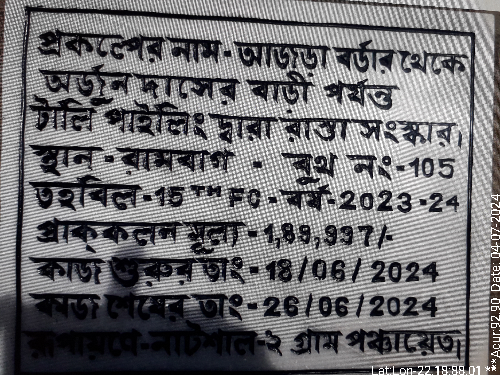 প্রকল্পের নাম- আজড়া বর্ডার থেকে
অর্জুন দাসের বাড়ী পর্যন্ত
টালি পাইলিং দ্বারা রাস্তা সংস্কার।
স্থান - রামবাগ - বুথ নং-105
তহবিল-15ᵀᴴ FC - বর্ষ-2023-24
প্রাক্কলন মূল্য-1,89,997/-
কাজ শুরুর তাং-18/06/2024
কাজ শেষের তাং-26/06/2024
রূপায়ণে-নাটশাল-২ গ্রাম পঞ্চায়েত।
Lat Lon-22,18,88.01 *** Acur:92.90 Date: 04-07-2024